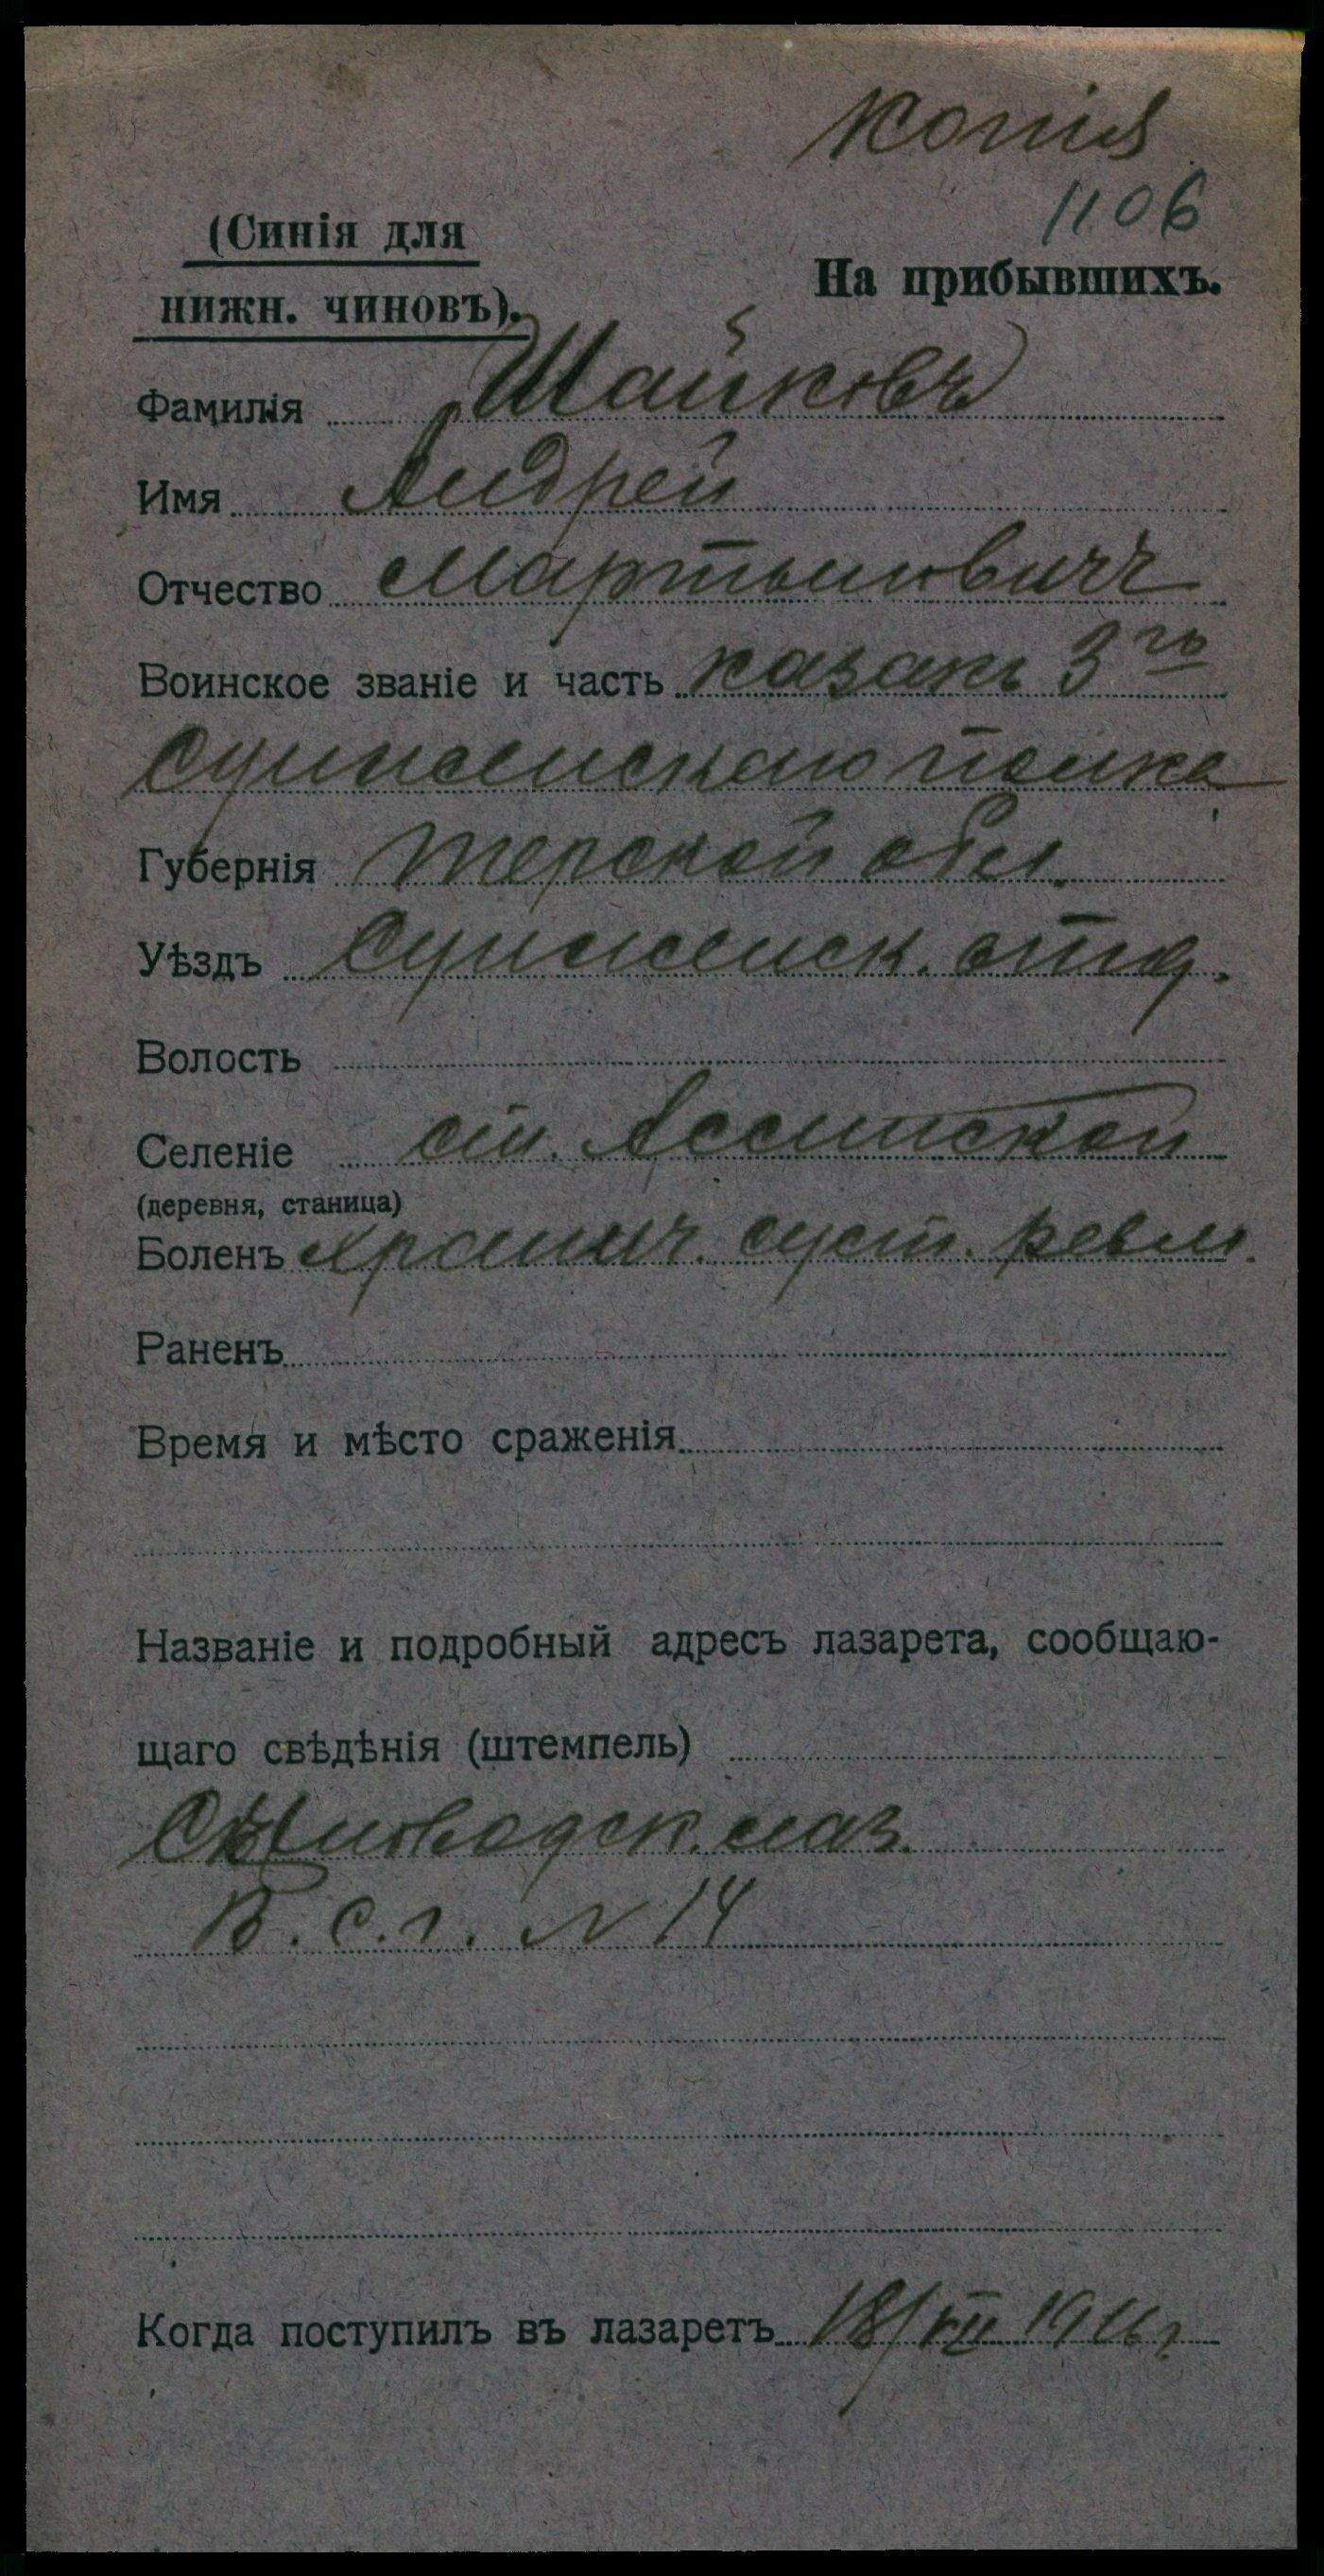 Копія
1106
(Синія для
нижн. чиновъ).
На прибывшихъ.
Фамилія Шайковъ
Имя Андрей
Отчество Мартыновичъ
Воинское званіе и часть казакъ 3го
Сунженскаго полка
Губернія Терской обл.
Уѣздъ Сунженск. отд.
Волость
Селеніе ст. Ассинской
(деревня, станица)
Боленъ хронич. суст. ревм.
Раненъ
Время и мѣсто сраженія
Названіе и подробный адресъ лазарета, сообщаю-
щаго свѣдѣнія (штемпель)
лаз.
В. с. г. N 14
Когда поступилъ въ лазаретъ 18/VII 1916 г